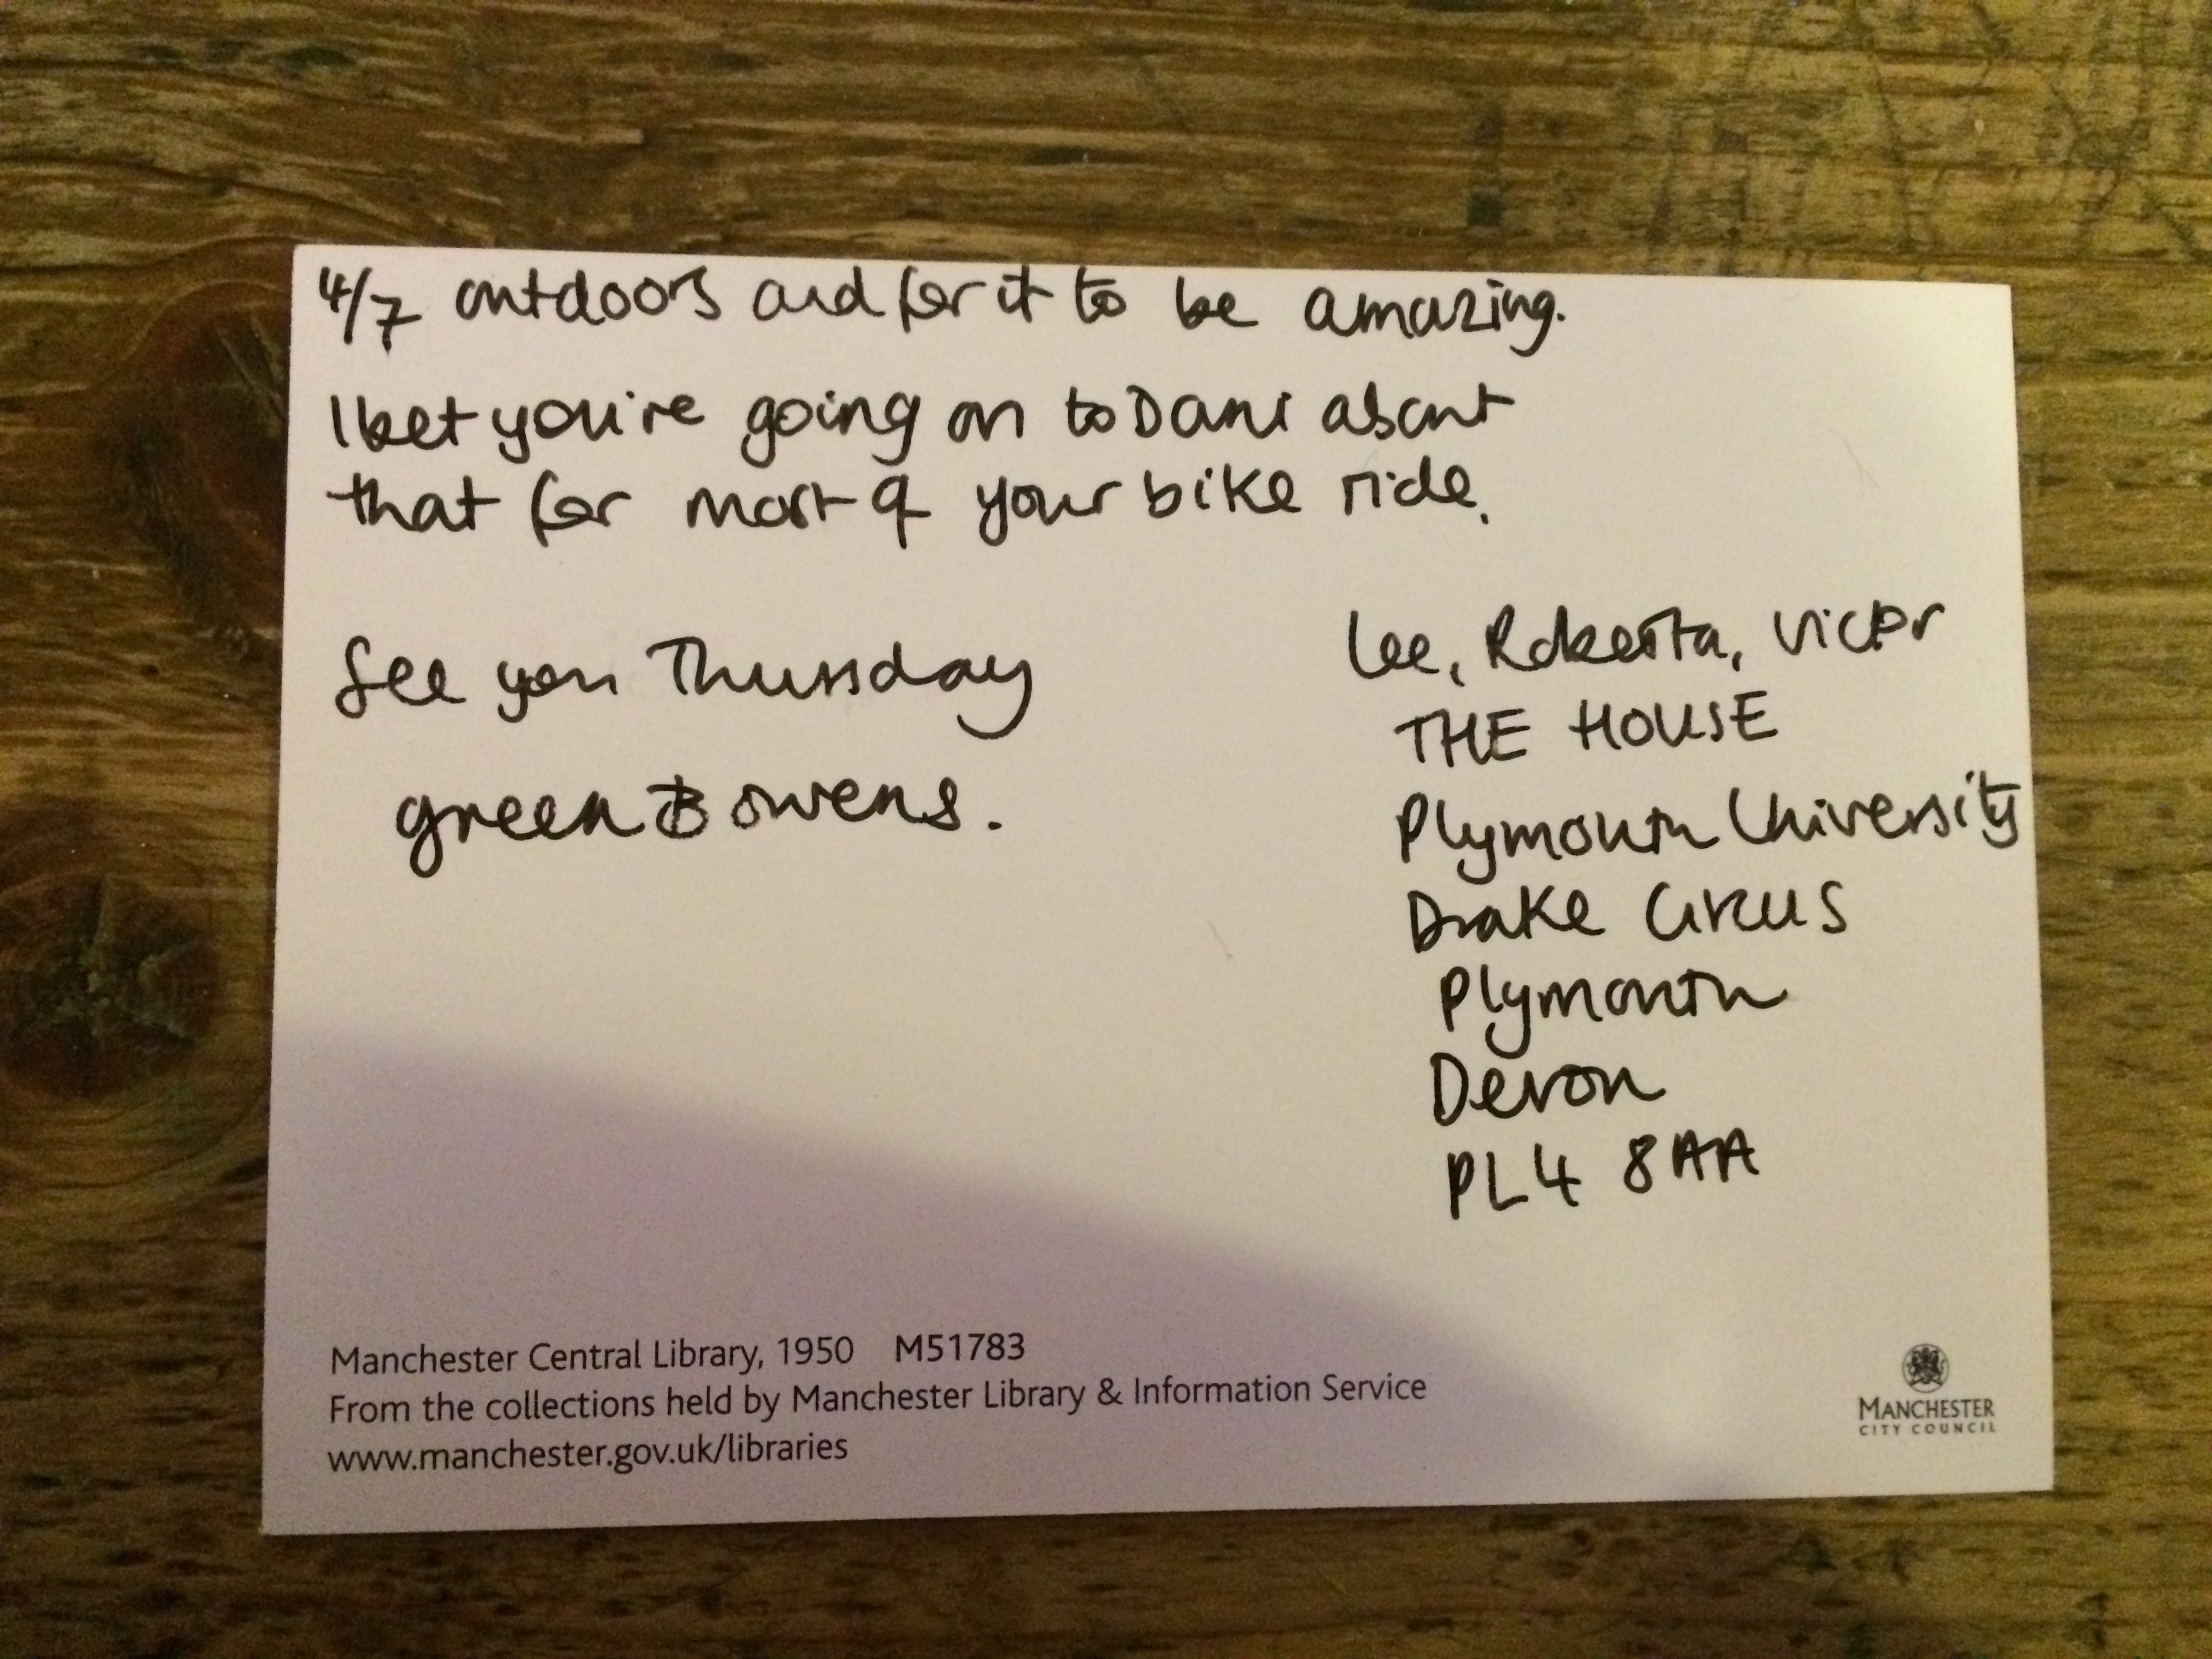 4/7 outdoors and for it to be amazing.
I bet you're going on to Dani about
that for most of your bike ride.
See you Thursday
green & owens.
Lee, Roberta, Victor
THE HOUSE
Plymouth University
Drake Circus
Plymouth
Devon
PL4 8AA
Manchester Central Library, 1950 M51783
From the collections held by Manchester Library & Information Service
www.manchester.gov.uk/libraries
MANCHESTER
CITY COUNCIL